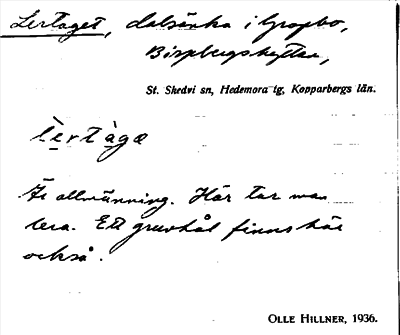 Lertaget, dalsänka i Gropbo,
Bispbergshyttan,
St. Skedvi sn, Hedemora tg, Kopparbergs län.
lè̱rtàga̱
Är allmänning. Här tar man
lera. Ett gruvhål finns här
också.
OLLE HILLNER, 1936.